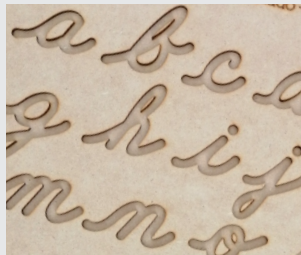 a b c d
g h i j
m n o